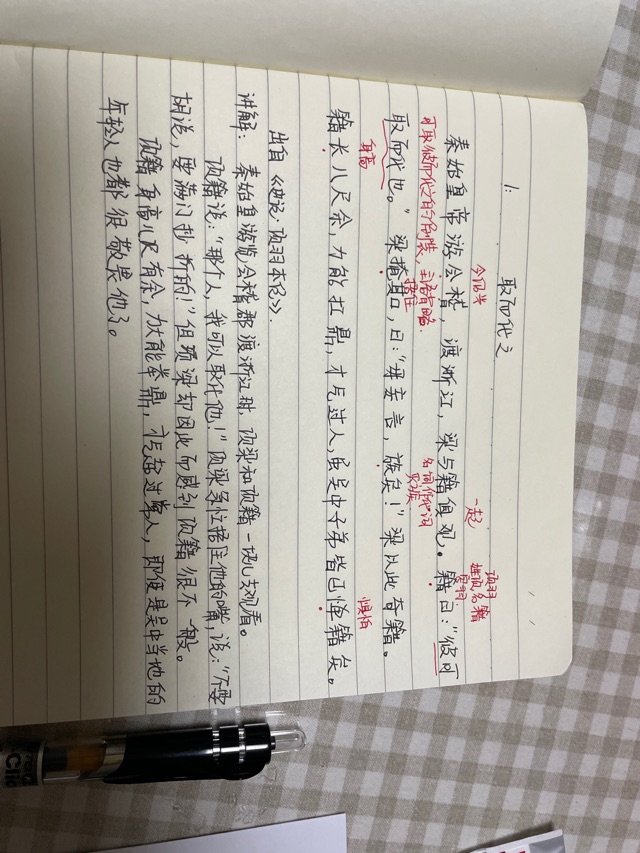 1.
取而代之
今绍兴
一起
项羽
姓项名籍
字羽
秦始皇帝游会稽，渡浙江，梁与籍俱观。籍曰："彼可
可取彼而代之的倒装，主语省略.
捂住
名词作动词
灭族
取而代也。"梁掩其口，曰："毋妄言，族矣！"梁以此奇籍。
身高
惧怕
籍长八尺余，力能扛鼎，才气过人，虽吴中子弟皆已惮籍矣。
出自《史记·项羽本纪》.
讲解：秦始皇游览会稽郡渡浙江时，项梁和项籍一块儿去观看。
项籍说："那个人，我可以取代他！"项梁急忙捂住他的嘴，说："不要
胡说，要满门抄斩的！"但项梁却因此而感到项籍很不一般。
项籍身高八尺有余，力大能举鼎，才气超过常人，即使是吴中当地的
年轻人也都很敬畏他了。
Clic